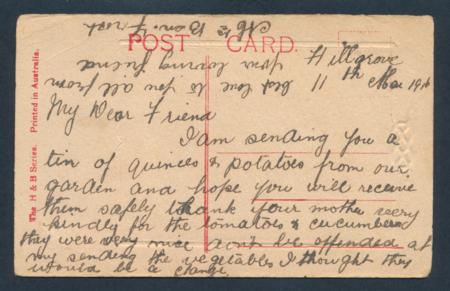 POST CARD.
The H & B Series. Printed in Australia.
Hillgrove
11th Mar 191
My Dear Friend
I am sending you a
tin of quinces & potatoes from our
garden and hope you will receive
them safely thank your mother very
kindly for the tomatoes & cucumbers
they were very nice don't be offended at
my sending the vegetables I thought they
would be a change
best love to you all from
your loving friend